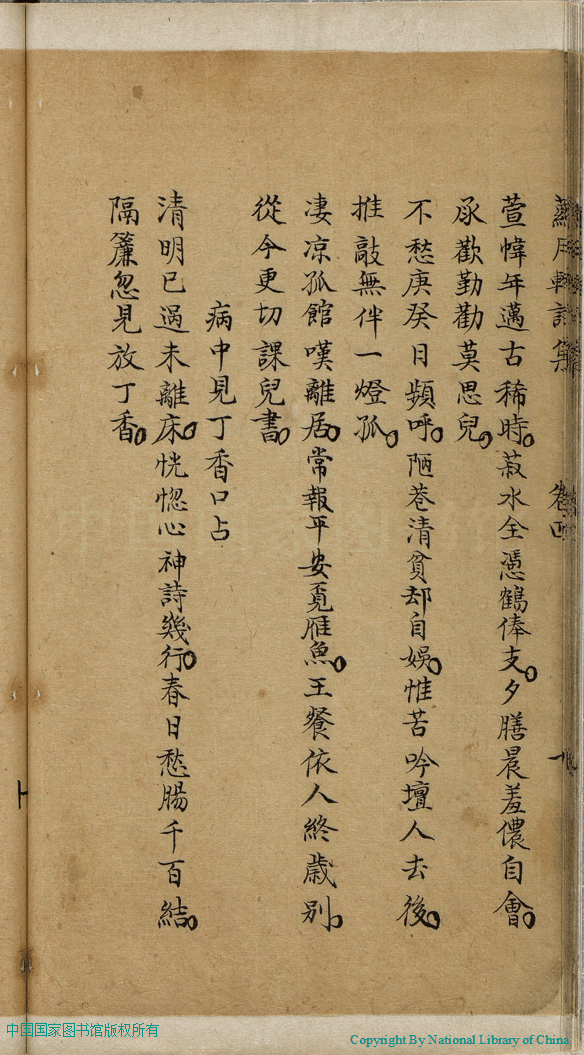 萱幃年邁古稀時菽水全憑鶴俸支夕膳晨羞儂自會
承歡勤勸莫思兒
不愁庚癸日頻呼陋巷清貧却自娛惟苦吟壇人去後
推敲無伴一燈孤
凄凉孤館嘆離居常報平安覓雁魚王餐依人終歲别
從今更切課兒書
病中見丁香口占
清明已過未離床恍惚心神詩幾行春日愁腸千百結
隔簾忽見放丁香
中国国家图书馆版权所有
Copyright By National Library of China